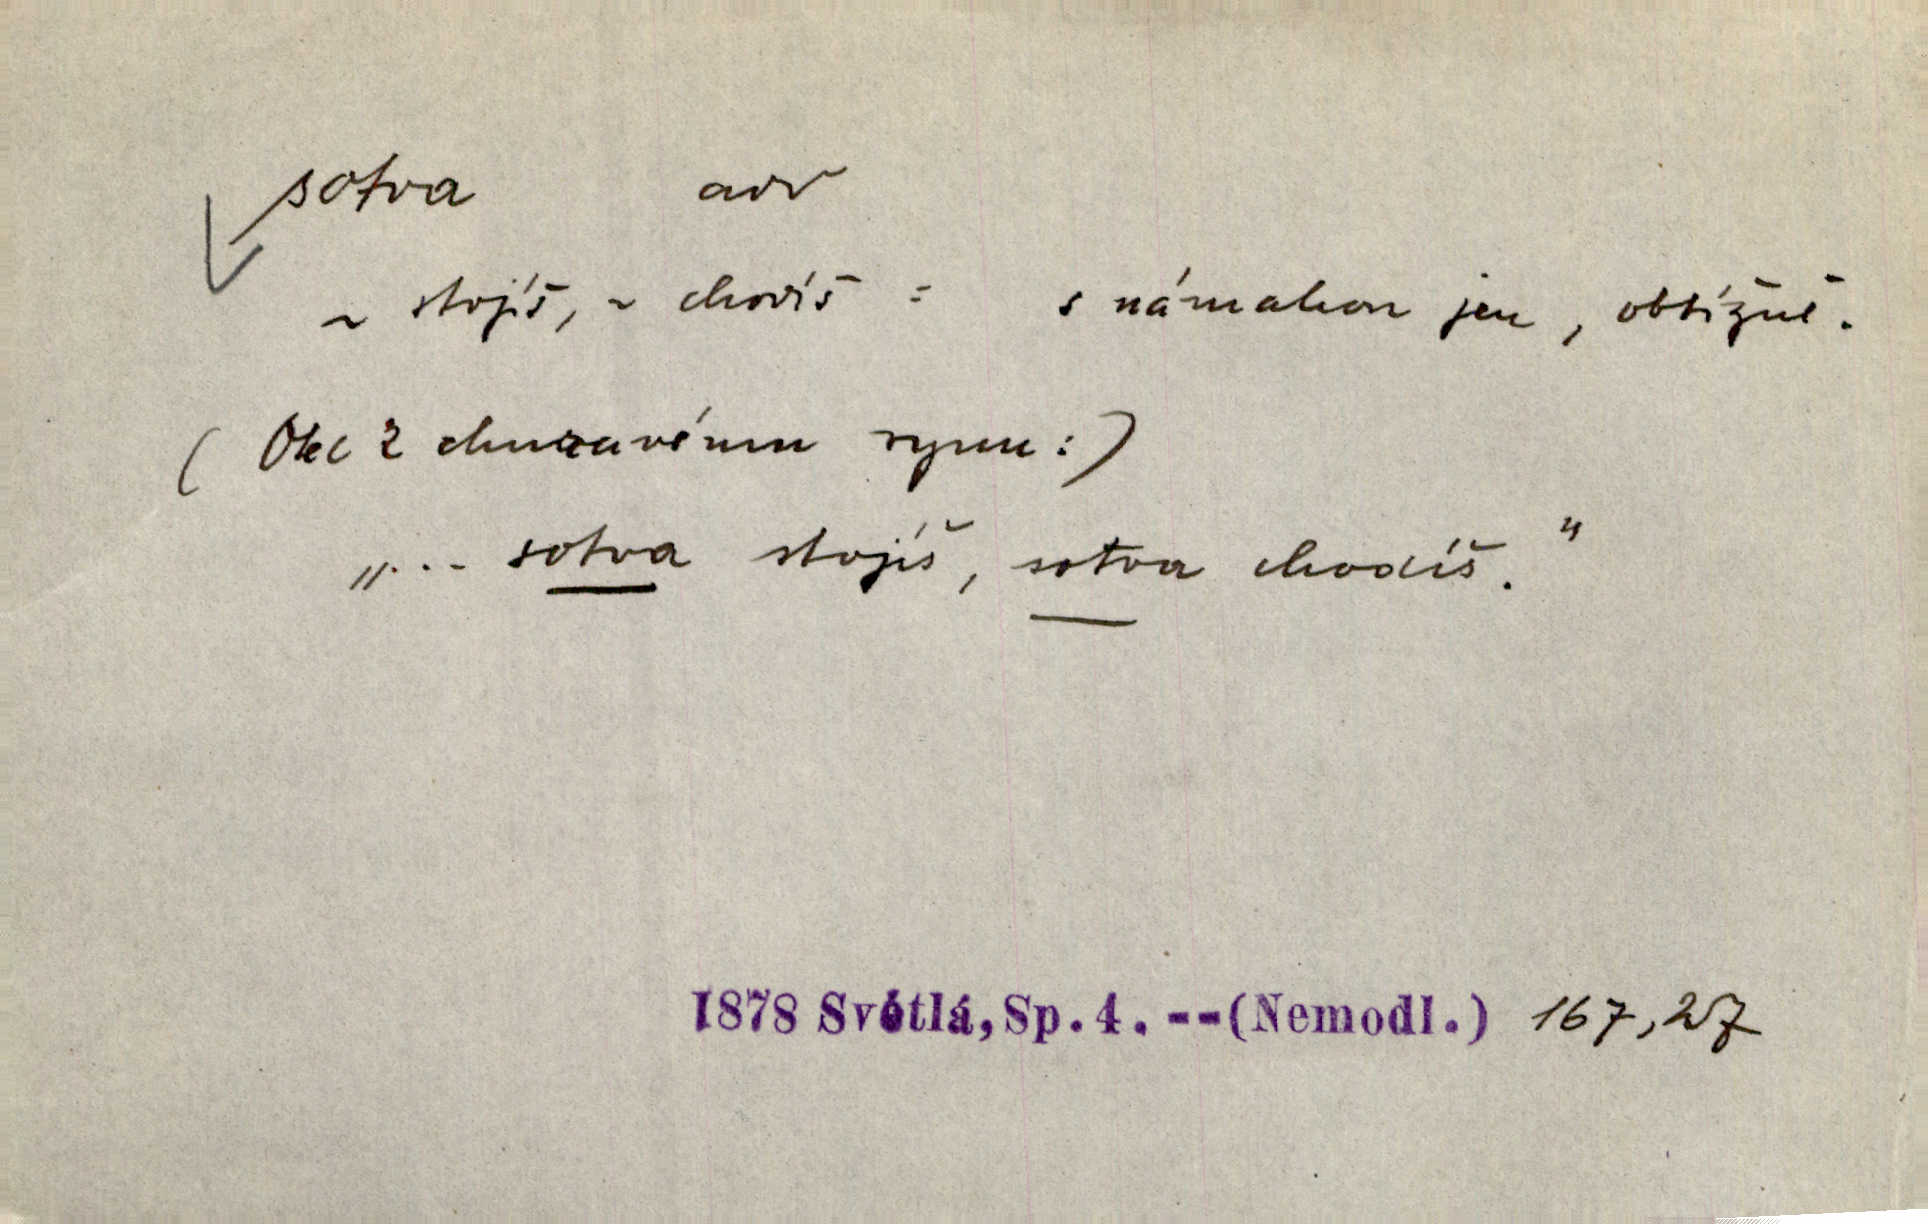 sotva adv
~ stojíš, ~ chodíš = s námahou jen, obtížně.
( Otec k churavému synu : )
„... sotva stojíš, sotva chodíš.“
1878 Světlá, Sp. 4. -- (Nemodl.) 167, 27